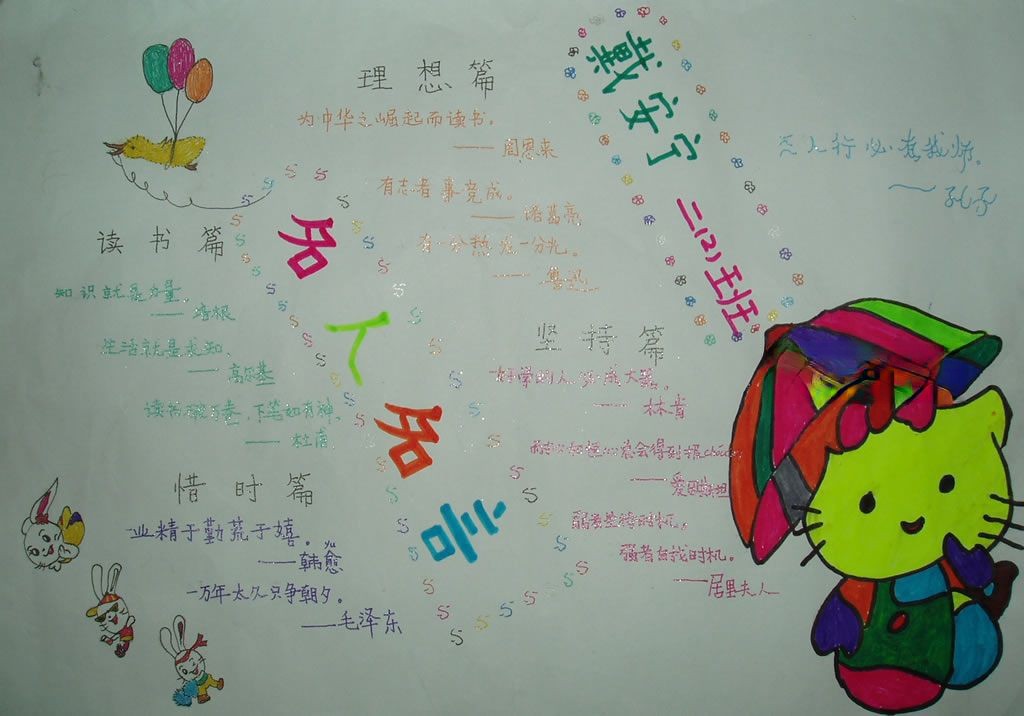 名人名言
戴安宁
二(2)班
理想篇
为中华之崛起而读书。
——周恩来
有志者事竟成。
——诸葛亮
有一分热发一分光。
——鲁迅
三人行必有我师。
——孔子
读书篇
知识就是力量。
——培根
生活就是求知、
——高尔基
读书破万卷,下笔如有神、
——杜甫
坚持篇
好学的人必成大器。
——林肯
耐心和恒心总会得到报
——爱因斯坦
弱者坐待时机,
强者自找时机。
——居里夫人
惜时篇
业精于勤荒于嬉。
yu
——韩愈
一万年太久只争朝夕。
——毛泽东